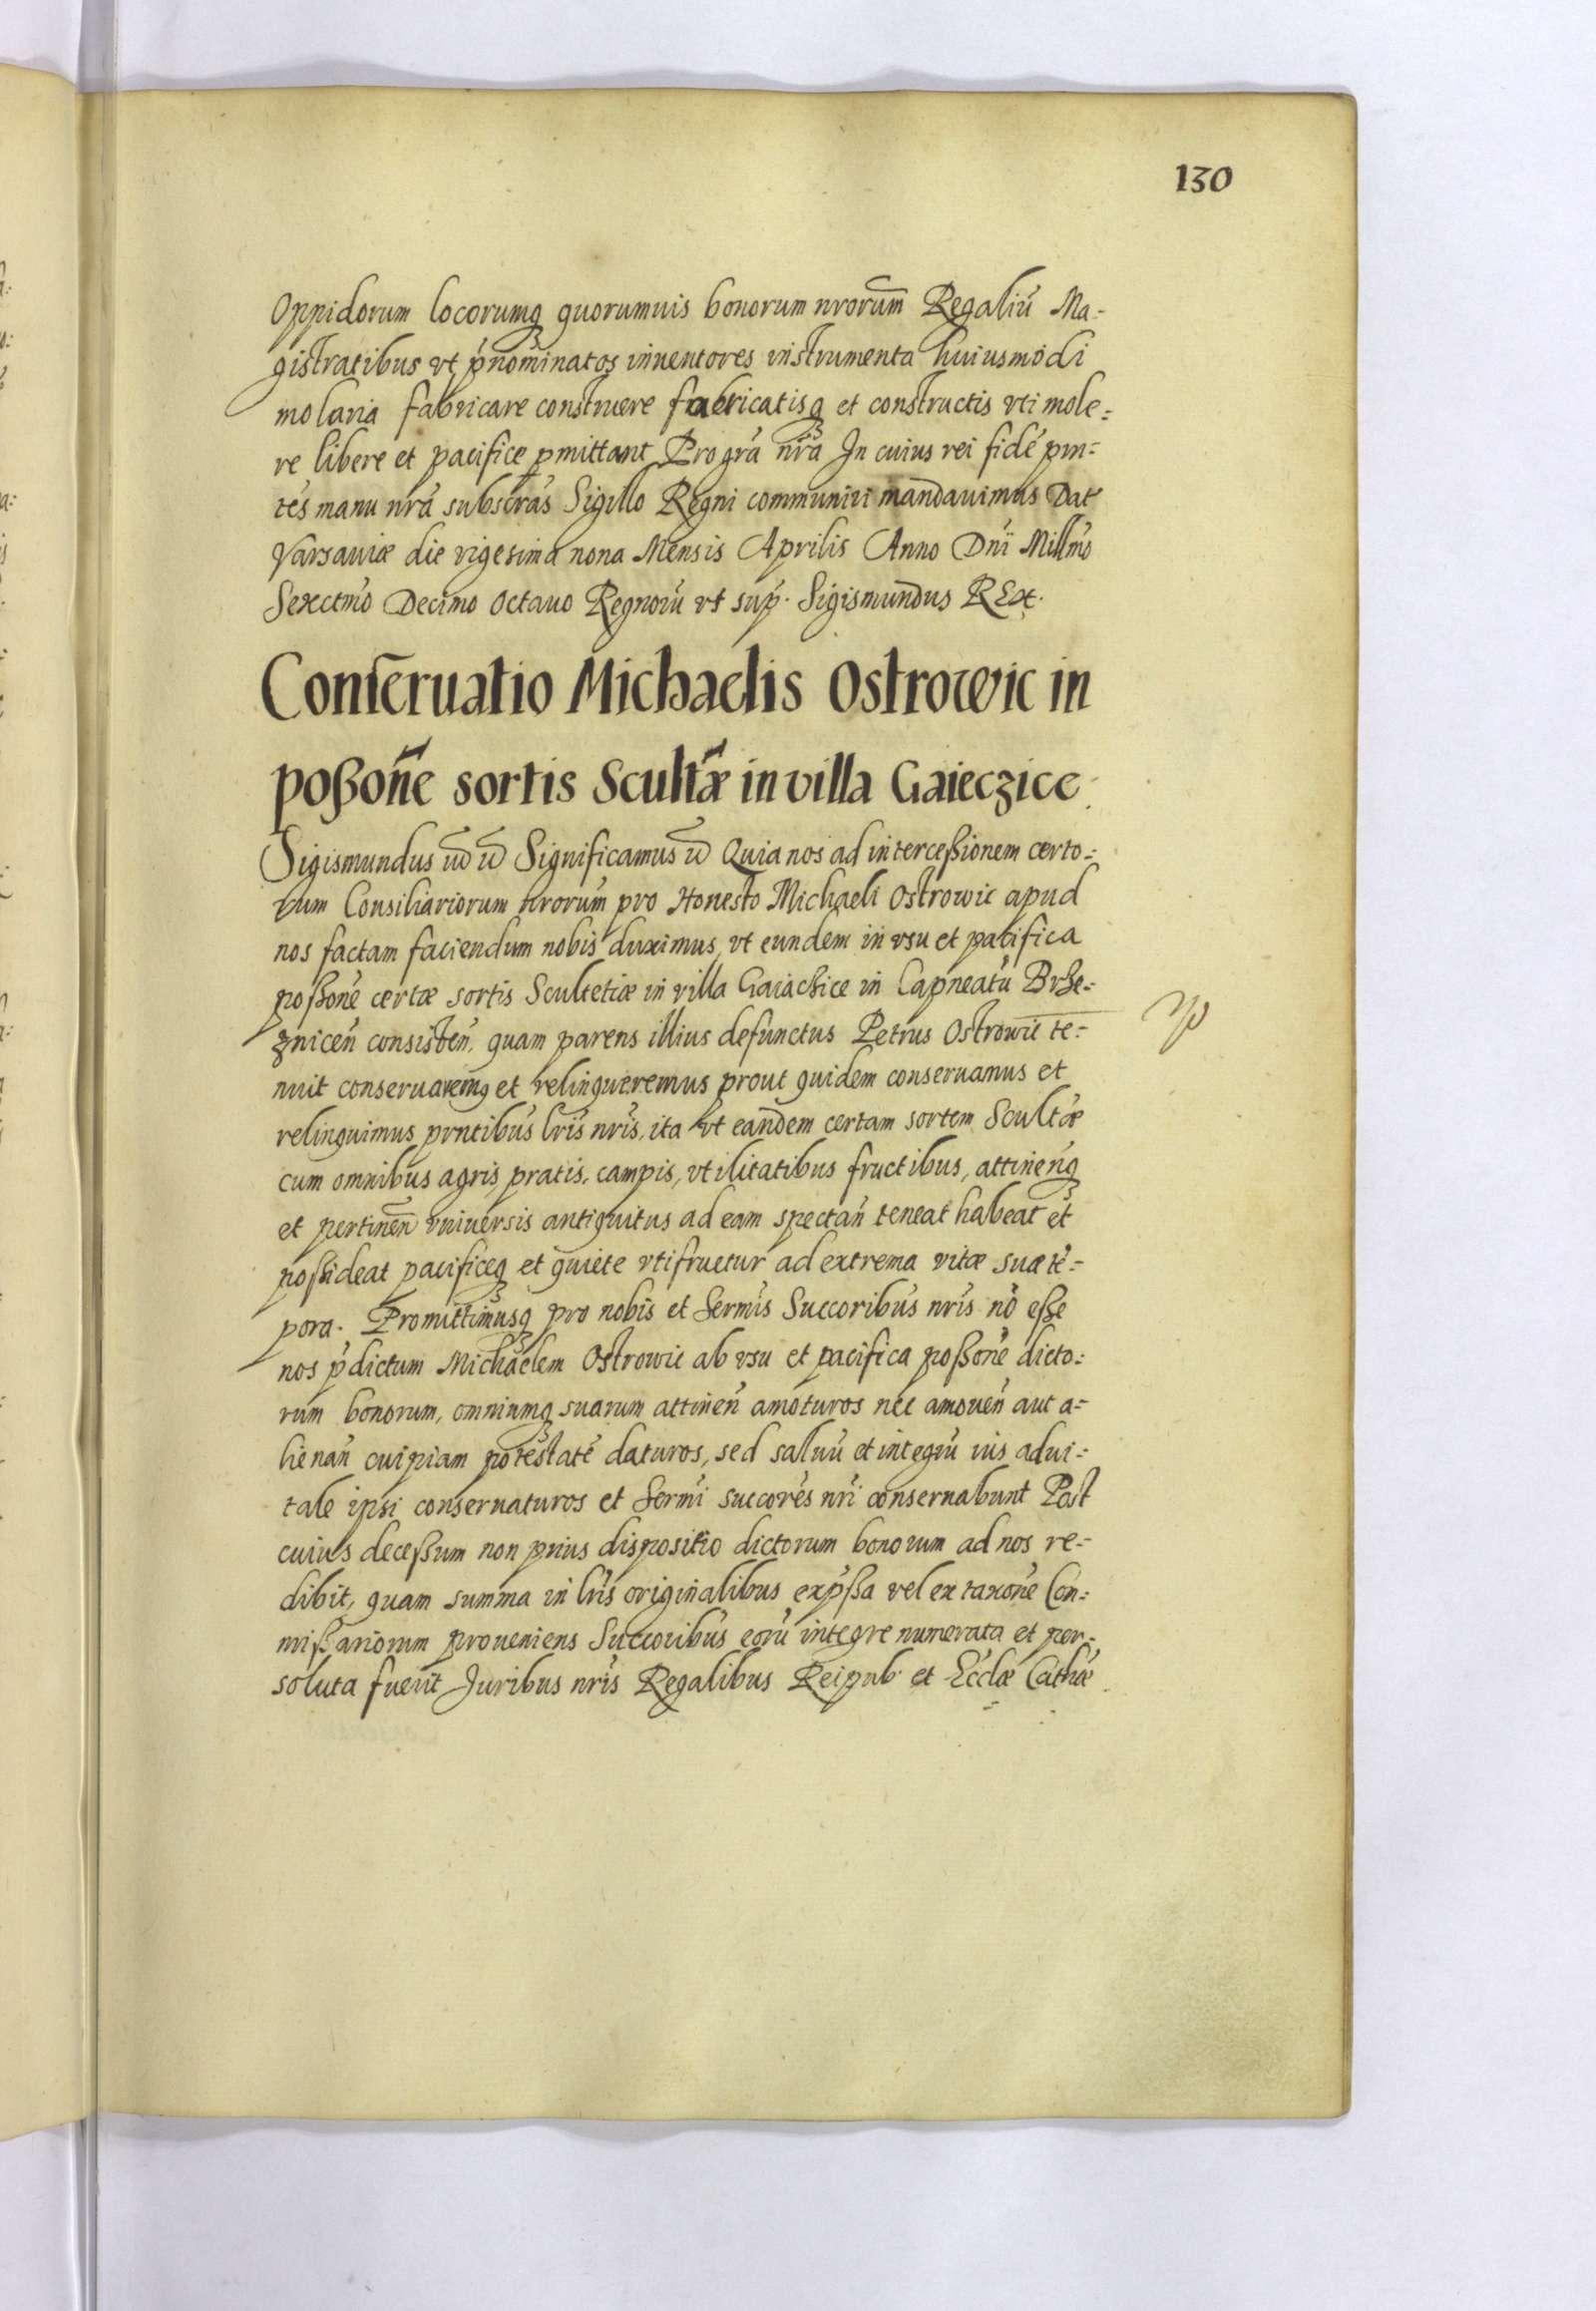 130
Oppidorum locorumq quorumuis bonorum nrorum Regaliu Ma-
gistratibus vt pnominatos inuentores instrumenta huiusmodi
molaria fabricare construere fabricatisq et constructis vti mole-
re libere et pacifice pmittant Pro gra nra In cuius rei fide pm-
tes manu nra subscras Sigillo Regni communiri mandauimus Dat
Varsauiæ die vigesima nona Mensis Aprilis Anno Dni Millmo
Sexctmo Decimo Octauo Regnoru vt sup. Sigismundus REx.
Conseruatio Michaelis Ostrowic in
poßone sortis Scultæ in villa Gaieczice
Sigismundus Significamus Quia nos ad interceßionem certo-
rum Consiliariorum nrorum pro Honesto Michaeli Ostrowic apud
nos factam faciendum nobis duximus, vt eundem in vsu et pacifica
poßone certæ sortis Scultetiæ in villa Gaiachice in Capneatu Brze-
znicen consisten, quam parens illius defunctus Petrus Ostrowic te-
nuit conseruaremq et relinqueremus prout quidem conseruamus et
relinquimus prntibus lris nris, ita vt eandem certam sortem Scultæ
cum omnibus agris, pratis, campis, vtilitatibus fructibus, attinenq
et pertinen vniuersis antiquitus ad eam spectan teneat habeat et
poßideat pacificeq et quiete vtifruetur ad extrema vitæ suæ te-
pora. Promittimusq pro nobis et Sermis Succoribus nris no eße
nos pdictum Michaelem Ostrowic ab vsu et pacifica poßone dicto-
rum bonorum, omniumq suarum attinen amoturos nec amouen aut a-
lienan cuipiam potestate daturos, sed saluu et integru ius adui-
tale ipsi conseruaturos et Sermi succores nri conseruabunt Post
cuius deceßum non prius dispositio dictorum bonorum ad nos re-
dibit, quam summa in lris originalibus expßa vel ex taxone Con-
mißariorum proueniens Succoribus eoru integre numerata et per-
soluta fuerit Juribus nris Regalibus Reipub. et Ecclæ Cathæ